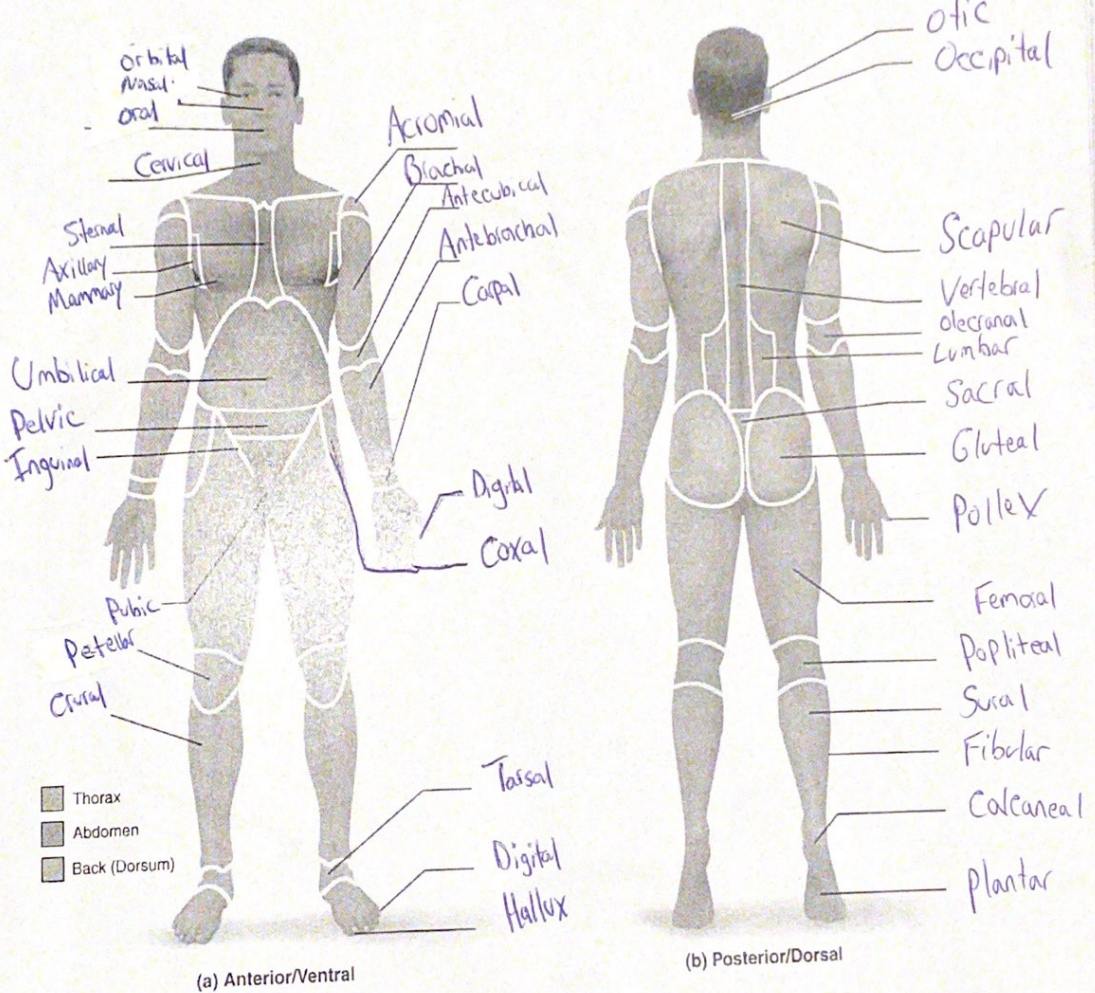 orbital
Nasal
oral
Cervical
Sternal
Axillary
Mammary
Umbilical
Pelvic
Inguinal
Pubic
Petellar
Crural
Acromial
Brachal
Antecubical
Antebrachal
Carpal
Digital
Coxal
Tarsal
Digital
Hallux
Thorax
Abdomen
Back (Dorsum)
(a) Anterior/Ventral
Otic
Occipital
Scapular
Vertebral
Olecranal
Lumbar
Sacral
Gluteal
Pollex
Femoral
Popliteal
Sural
Fibular
Calcaneal
Plantar
(b) Posterior/Dorsal